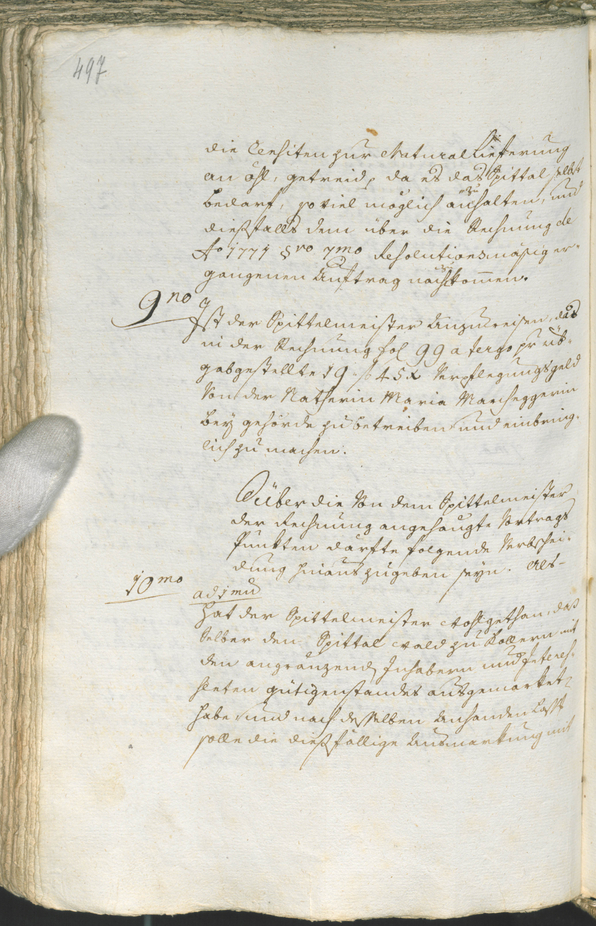 497
die Censiten zur Natural Lieferung
an öhl, getreid, da es das Spittal selbst
bedarf, so viel möglich anhalten, und
diesfalls dem über die Rechnung de
Ao 1771 5to 7mo Resolutionsmäsig er-
gangenen Auftrag nachkommen.
9no
Ist der Spittelmeister anzuweisen, das
in der Rechnung fol 99 a tergo pr üb-
gabgestellte 19 f 45 x Verpflegungsgeld
von der Natherin Maria Marcheggerin
bey gehörde zu betreiben und einbring-
lich zu machen.
Über die von dem Spittelmeister
der Rechnung angehängte Vortrags
Punkten dörfte folgende Verbschei-
dung hinaus zugeben seyn. Als-
10mo
ad 1mu
hat der Spittelmeister wohl gethan, daß
selber den Spittal wald zu Kollern mit
den angränzend Inhabern und Interes-
senten gütigenstandes ausgemarket
habe und nach desselben
solle die diesfällige Ausmarkung mit